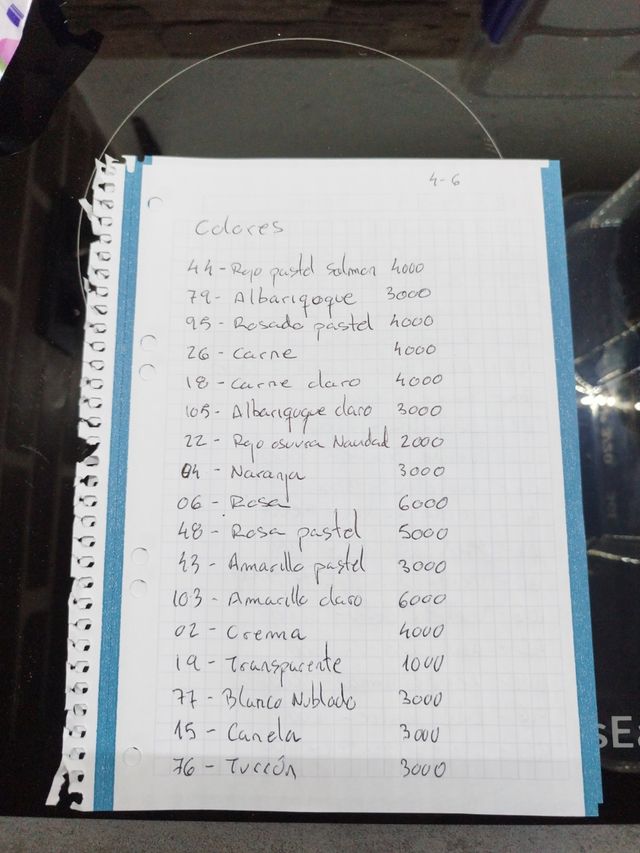 4-6
Colores
44 - Rojo pastel Salmon 4000
79 - Albariqoque 3000
95 - Rosado pastel 4000
26 - Carne 4000
18 - Carne claro 4000
105 - Albariqoque claro 3000
22 - Rojo osuvra Navidad 2000
04 - Naranja 3000
06 - Rosa 6000
48 - Rosa pastel 5000
43 - Amarillo pastel 3000
103 - Amarillo claro 6000
02 - Crema 4000
19 - Transparente 1000
77 - Blanco Nublado 3000
15 - Canela 3000
76 - 3000
sEa